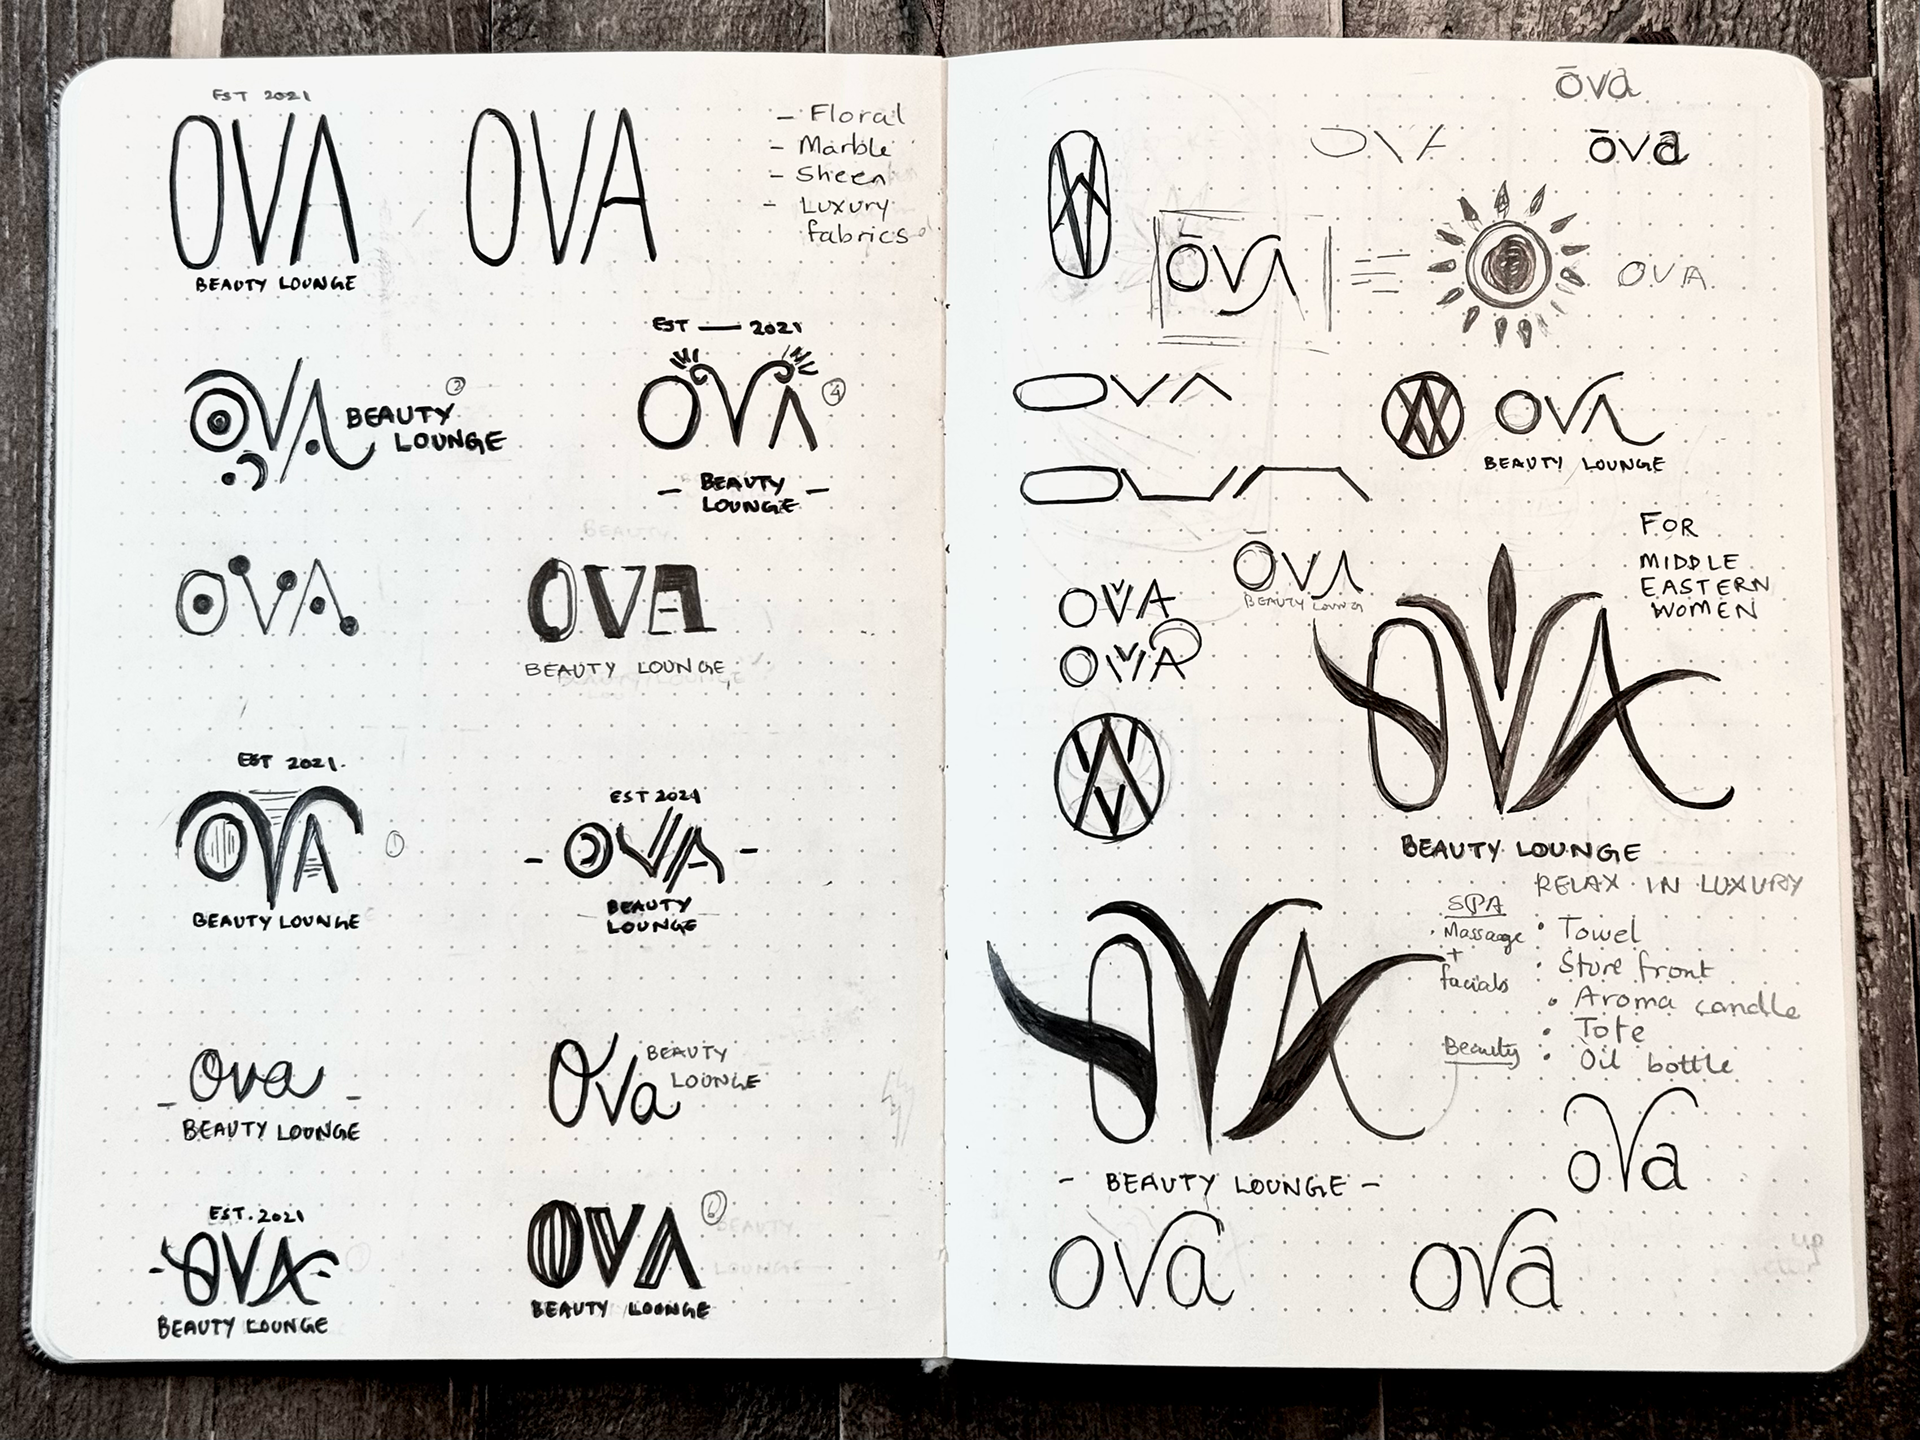 EST 2021
OVA
BEAUTY LOUNGE
OVA
- Floral
- Marble
- Sheen
- Luxury
fabrics
OVA
BEAUTY
LOUNGE
2
EST — 2021
OVA
4
- BEAUTY -
LOUNGE
OVA
BEAUTY
OVA
BEAUTY LOUNGE
EST 2021.
OVA
BEAUTY LOUNGE
1
EST 2021
- OVA -
BEAUTY
LOUNGE
Ova
- BEAUTY LOUNGE -
OVa
BEAUTY
LOUNGE
EST. 2021
- OVA -
BEAUTY LOUNGE
OVA
BEAUTY LOUNGE
BEAUTY
LOUNGE
ōva
OVA
ōva
ŌVA
OVA
OVA
OVA
BEAUTY LOUNGE
OVA
FOR
MIDDLE
EASTERN
WOMEN
ŌVA
BEAUTY LOUNGE
OVA
OVA
OVA
BEAUTY LOUNGE
RELAX IN LUXURY
SPA
Massaage
+
facials
Beauty
• Towel
• Store front
• Aroma candle
• Tote
• Oil bottle
OVA
- BEAUTY LOUNGE -
oVa
OVa
OVa